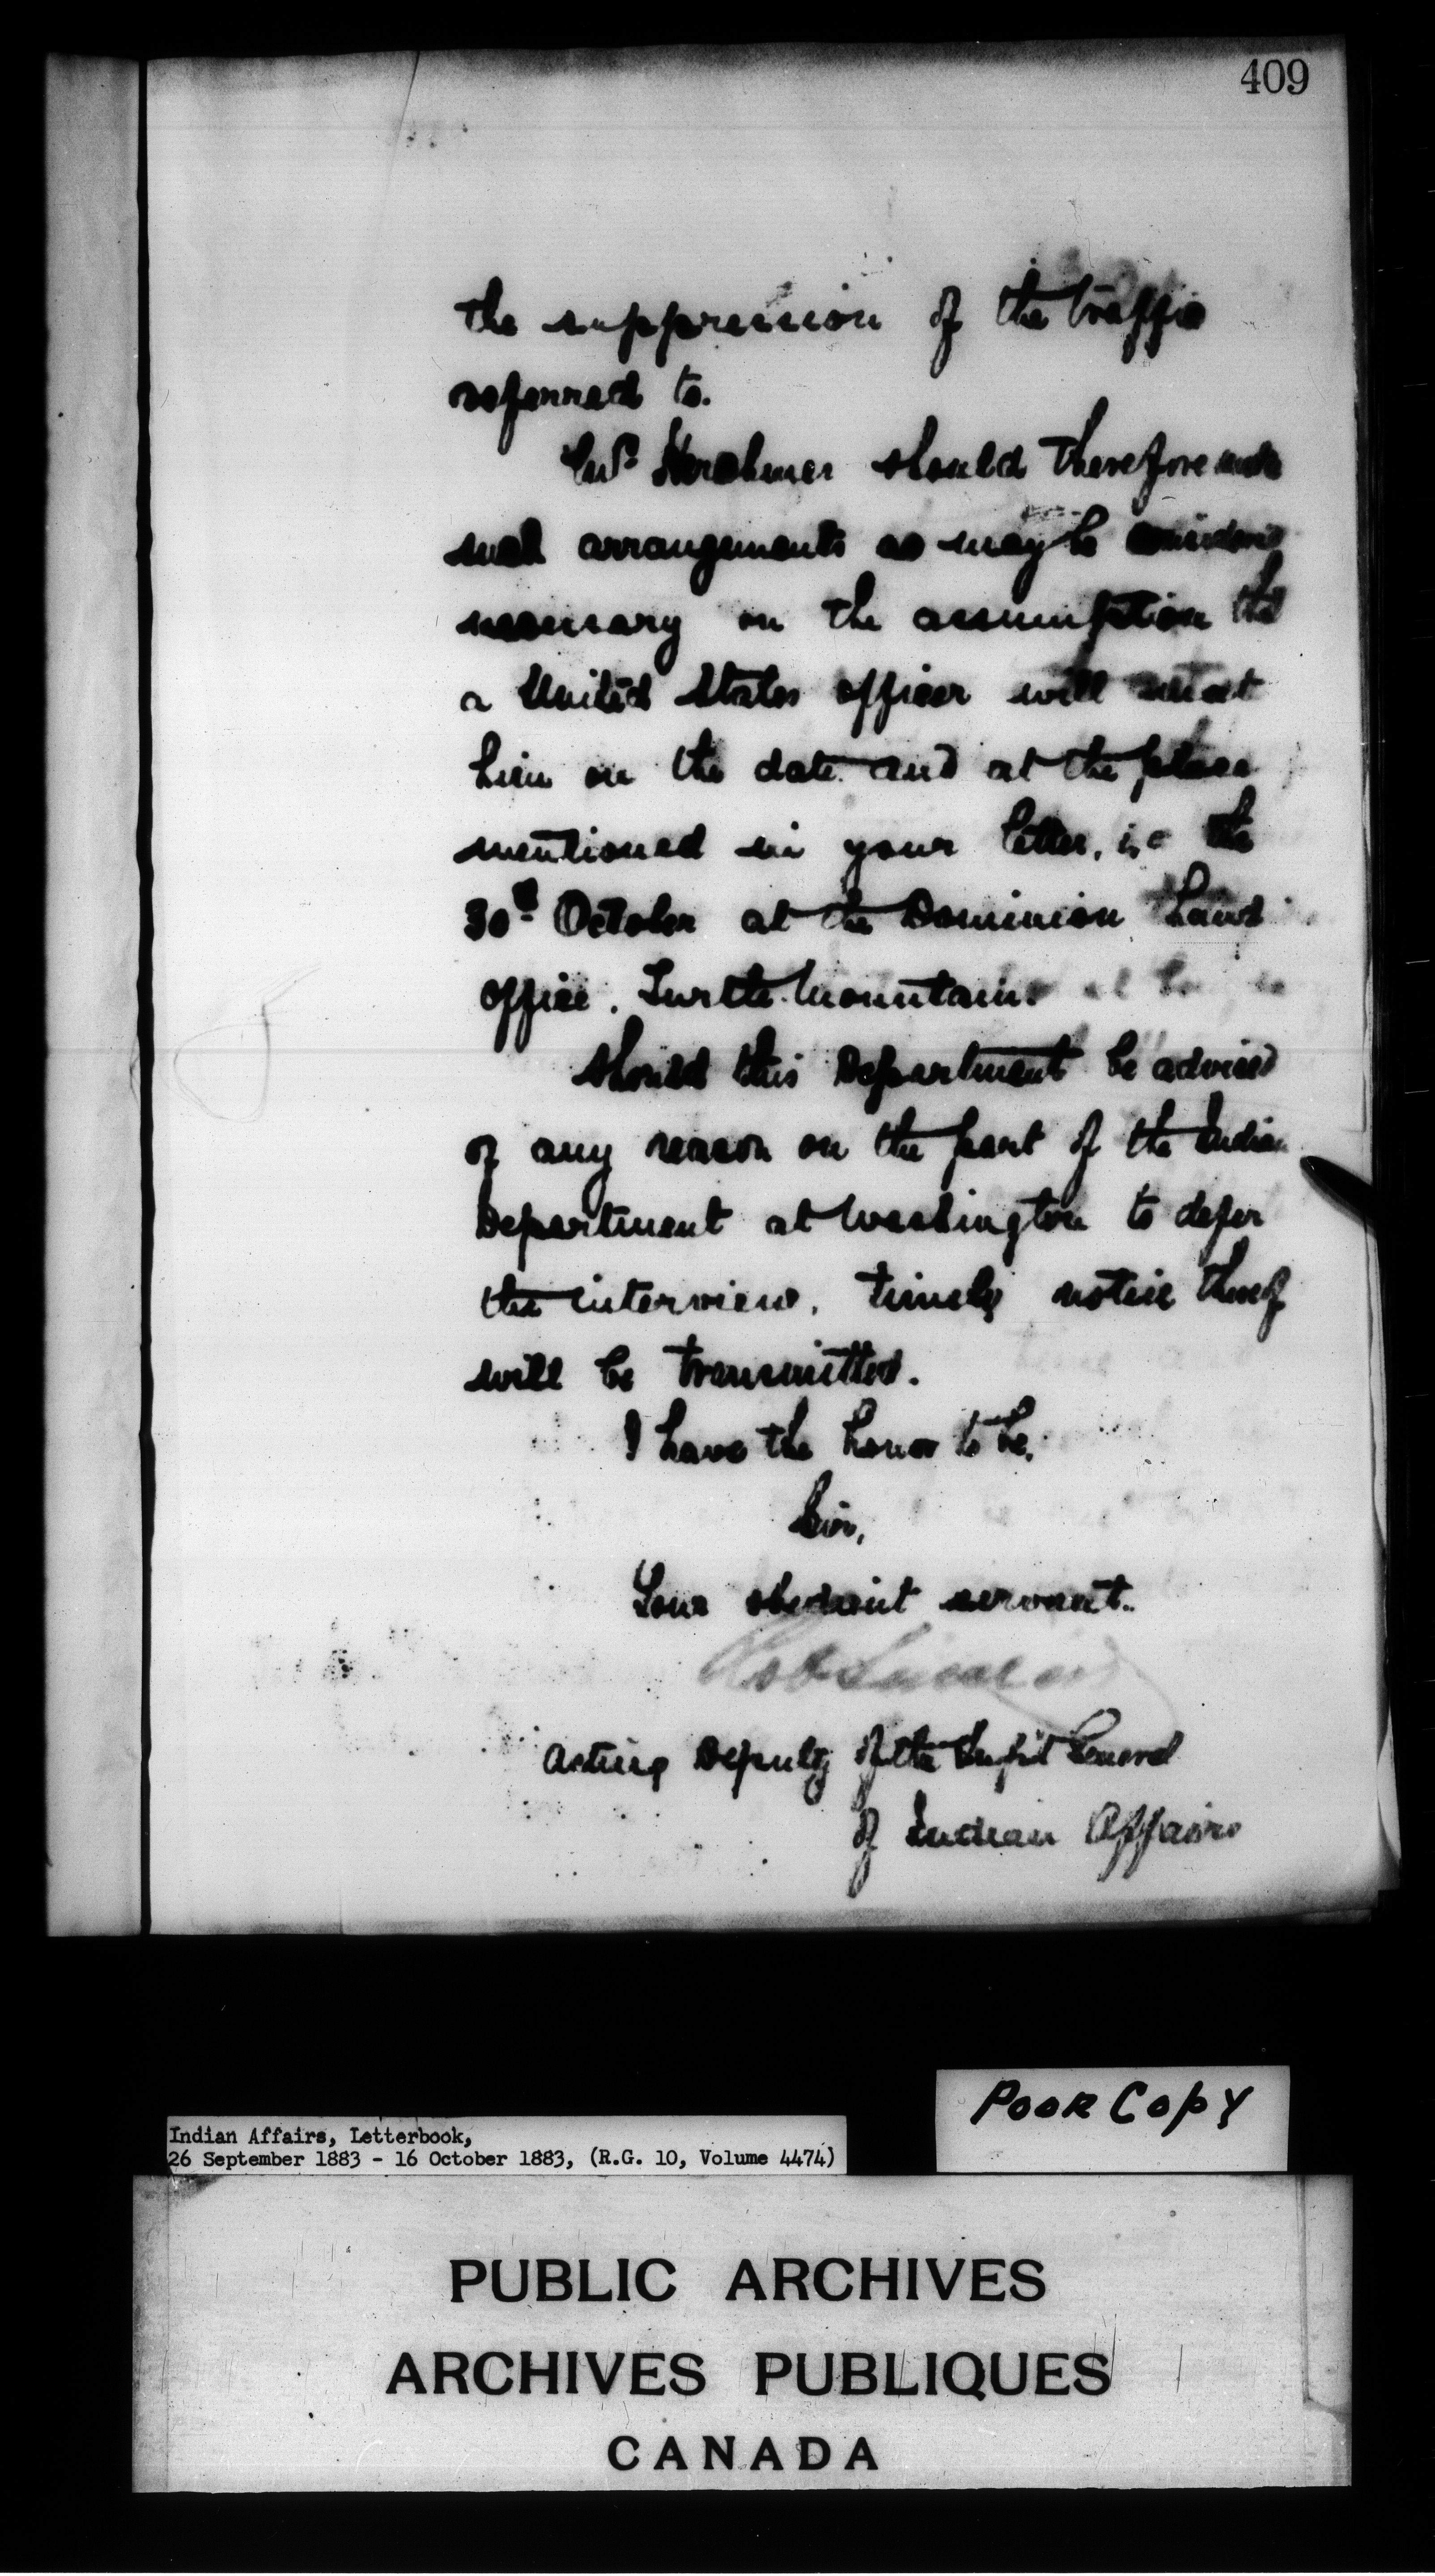 409
the suppression of the traffic
referred to.
Mr. Herchmer should therefore make
such arrangements as may be considered
necessary on the assumption that
a United States officer will meet
him on the date and at the place
mentioned in your letter, i.e the
30th October at the Dominion Land
Office. Turtle Mountain.
Should this Department be advised
of any reason on the part of the Indian
Department at Washington to defer
the interview, timely notice thereof
will be transmitted.
I have the honor to be,
Sir,
Your obedient servant.
Acting Deputy of the Supt General
of Indian Affairs
POOR COPY
Indian Affairs, Letterbook,
26 September 1883 - 16 October 1883, (R.G. 10, Volume 4474)
PUBLIC ARCHIVES
ARCHIVES PUBLIQUES
CANADA